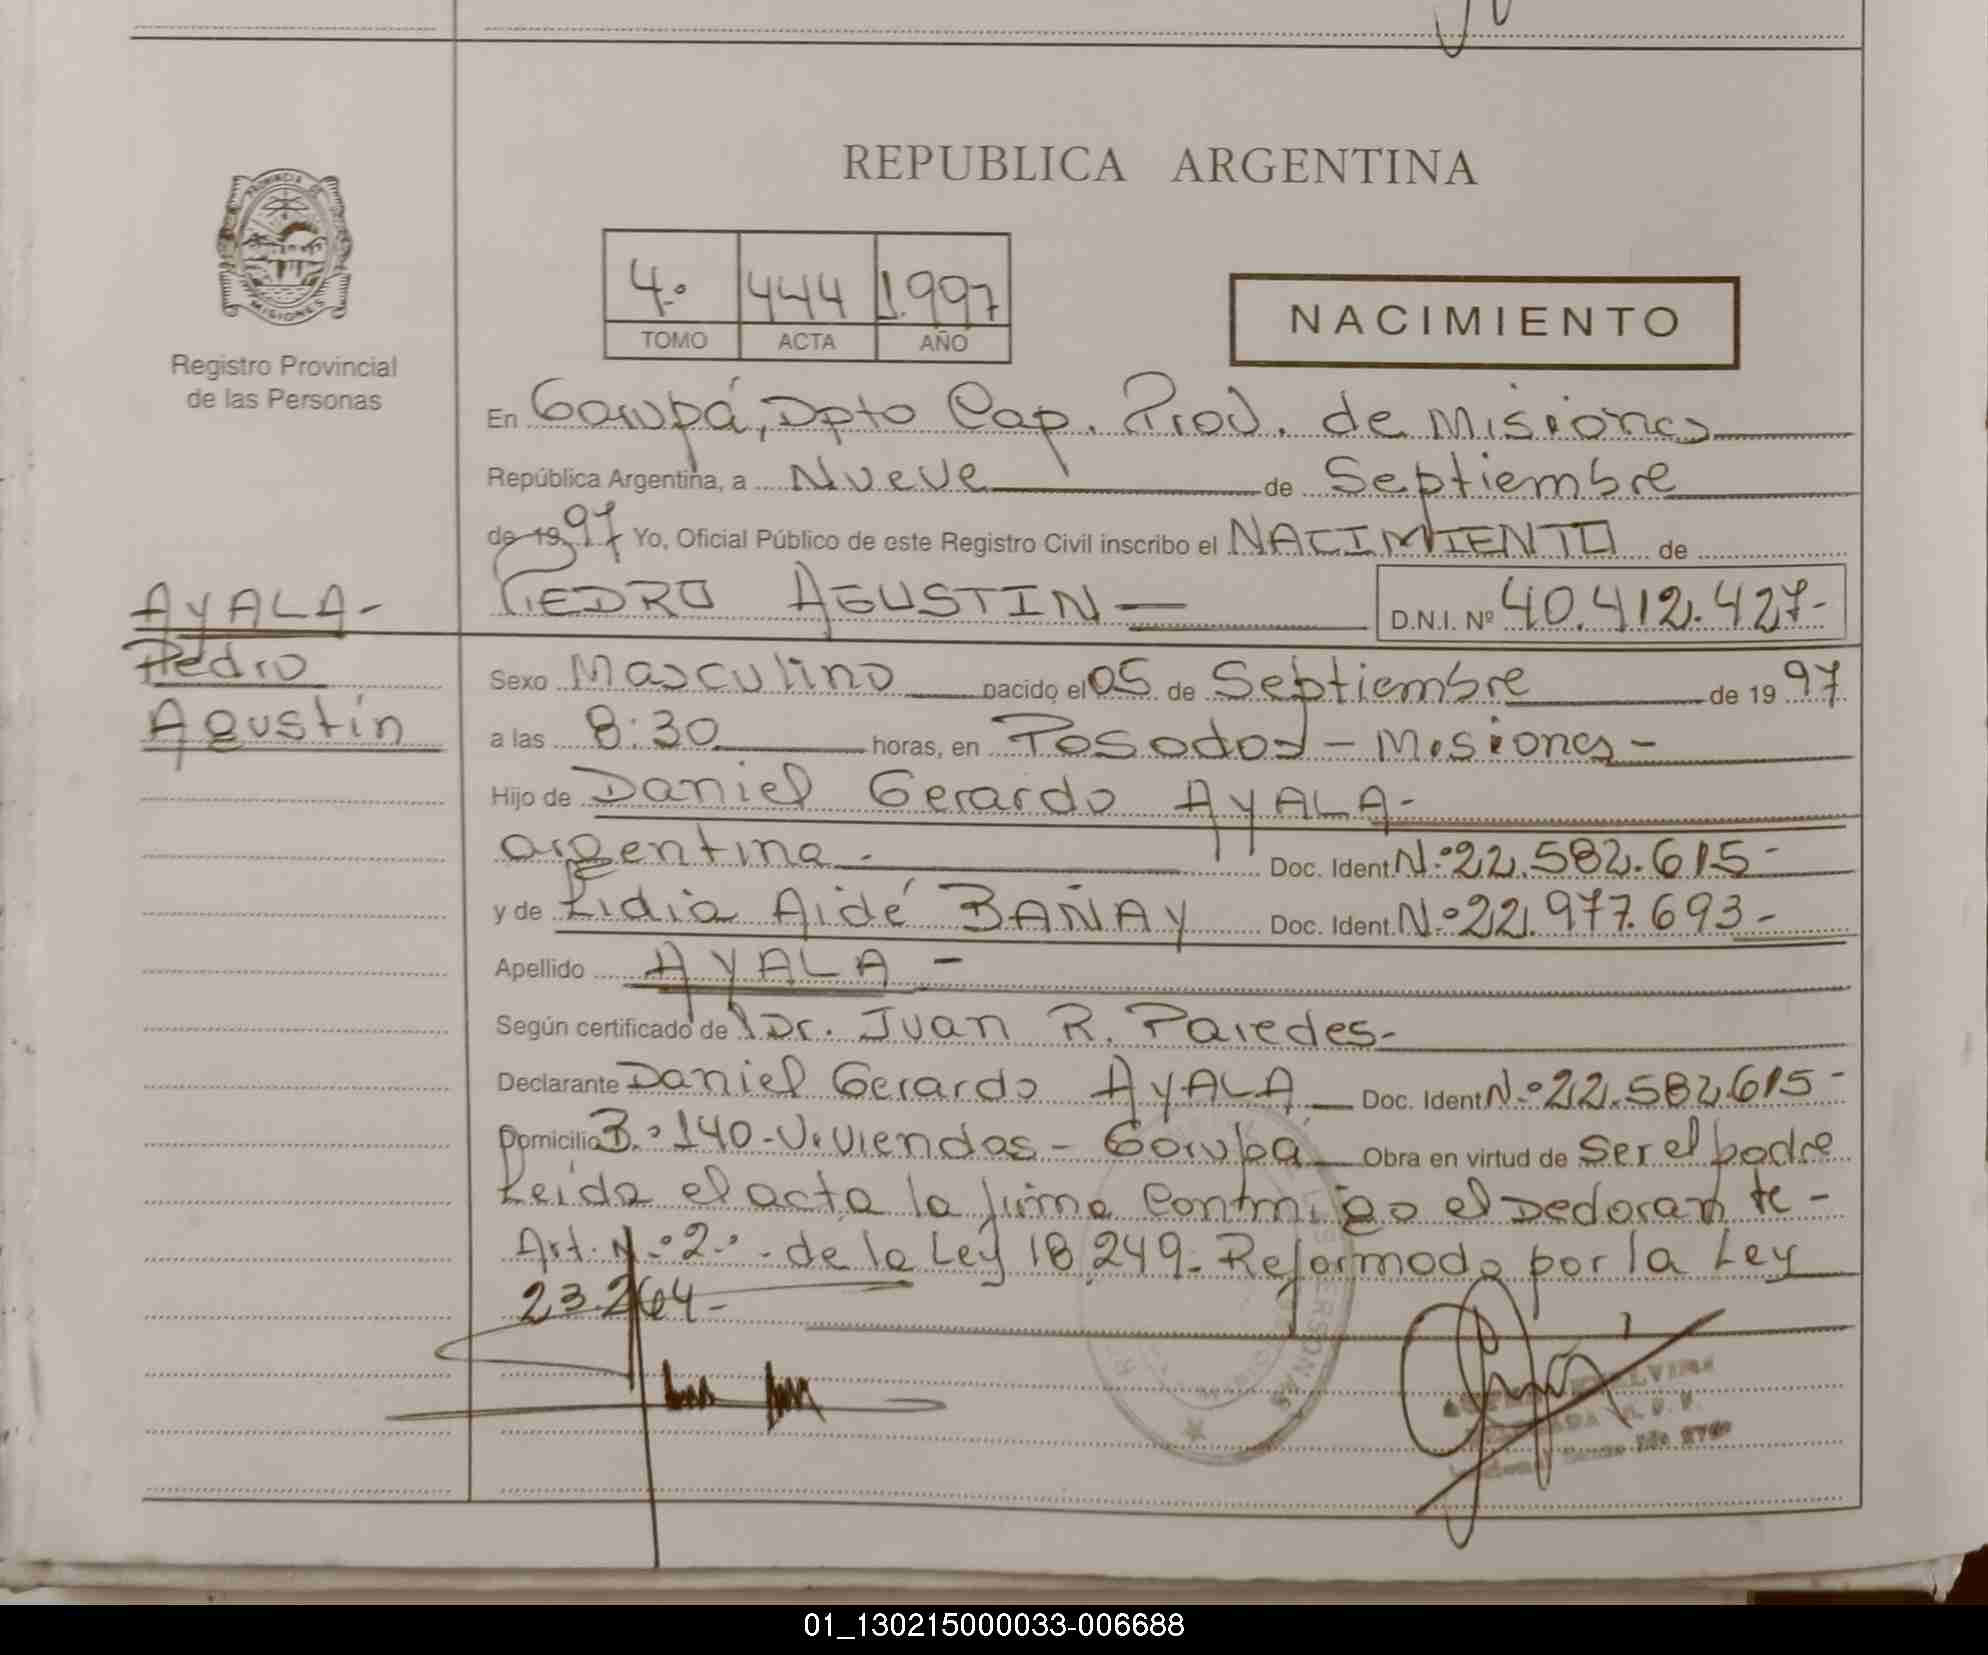 REPUBLICA ARGENTINA
PROVINCIA DE
MISIONES
Registro Provincial
de las Personas
4º 444 1.997
TOMO ACTA AÑO
NACIMIENTO
En Garupá, Dpto Cap. Prov. de Misiones
República Argentina, a Nueve de Septiembre
de 1997 Yo, Oficial Público de este Registro Civil inscribo el NACIMIENTO de
PEDRO AGUSTIN D.N.I. Nº 40.412.427-
AYALA-
Pedro
Agustín
Sexo Masculino nacido el 05 de Septiembre de 1997
a las 8:30 horas, en Posadas - Misiones -
Hijo de Daniel Gerardo AYALA-
argentina - Doc. Ident. N.º 22.582.615-
y de Lidia Aidé BAÑAY Doc. Ident. N.º 22.977.693-
Apellido AYALA -
Según certificado de Dr. Juan R. Paredes-
Declarante Daniel Gerardo AYALA Doc. Ident N.º 22.582.615-
Domicilio B.º 140-Viviendas - Garupá Obra en virtud de Ser el padre
Leida el acta la firma Conmigo el Declarante -
Art. N.º 2.º - de la Ley 18.249- Reformada por la Ley
23.264-
01_130215000033-006688